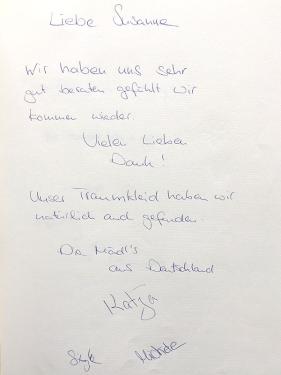 Liebe Susanne
Wir haben uns sehr
gut beraten gefühlt wir
kommen wieder.
Vielen Lieben
Dank!
Unser Traumkleid haben wir
natürlich auch gefunden.
Die Mädl's
aus Deutschland
Katja